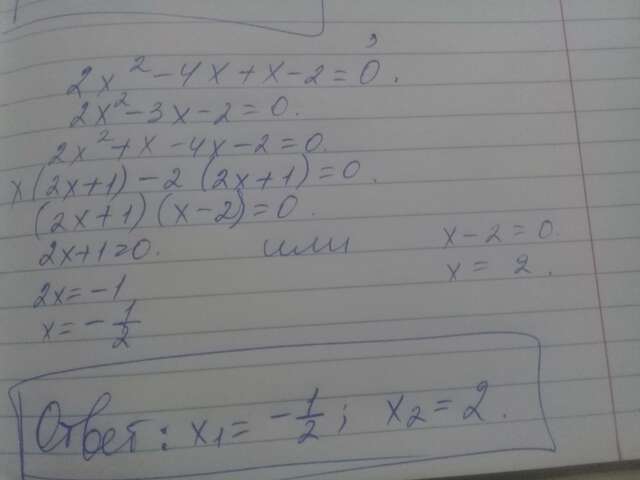 2x² - 4x + x - 2 = 0.
2x² - 3x - 2 = 0.
2x² + x - 4x - 2 = 0.
x(2x+1) - 2 (2x+1) = 0.
(2x+1) (x-2) = 0.
2x+1=0. или x-2=0.
2x = -1 x = 2.
x = -1/2
Ответ: x₁ = -1/2; x₂ = 2.